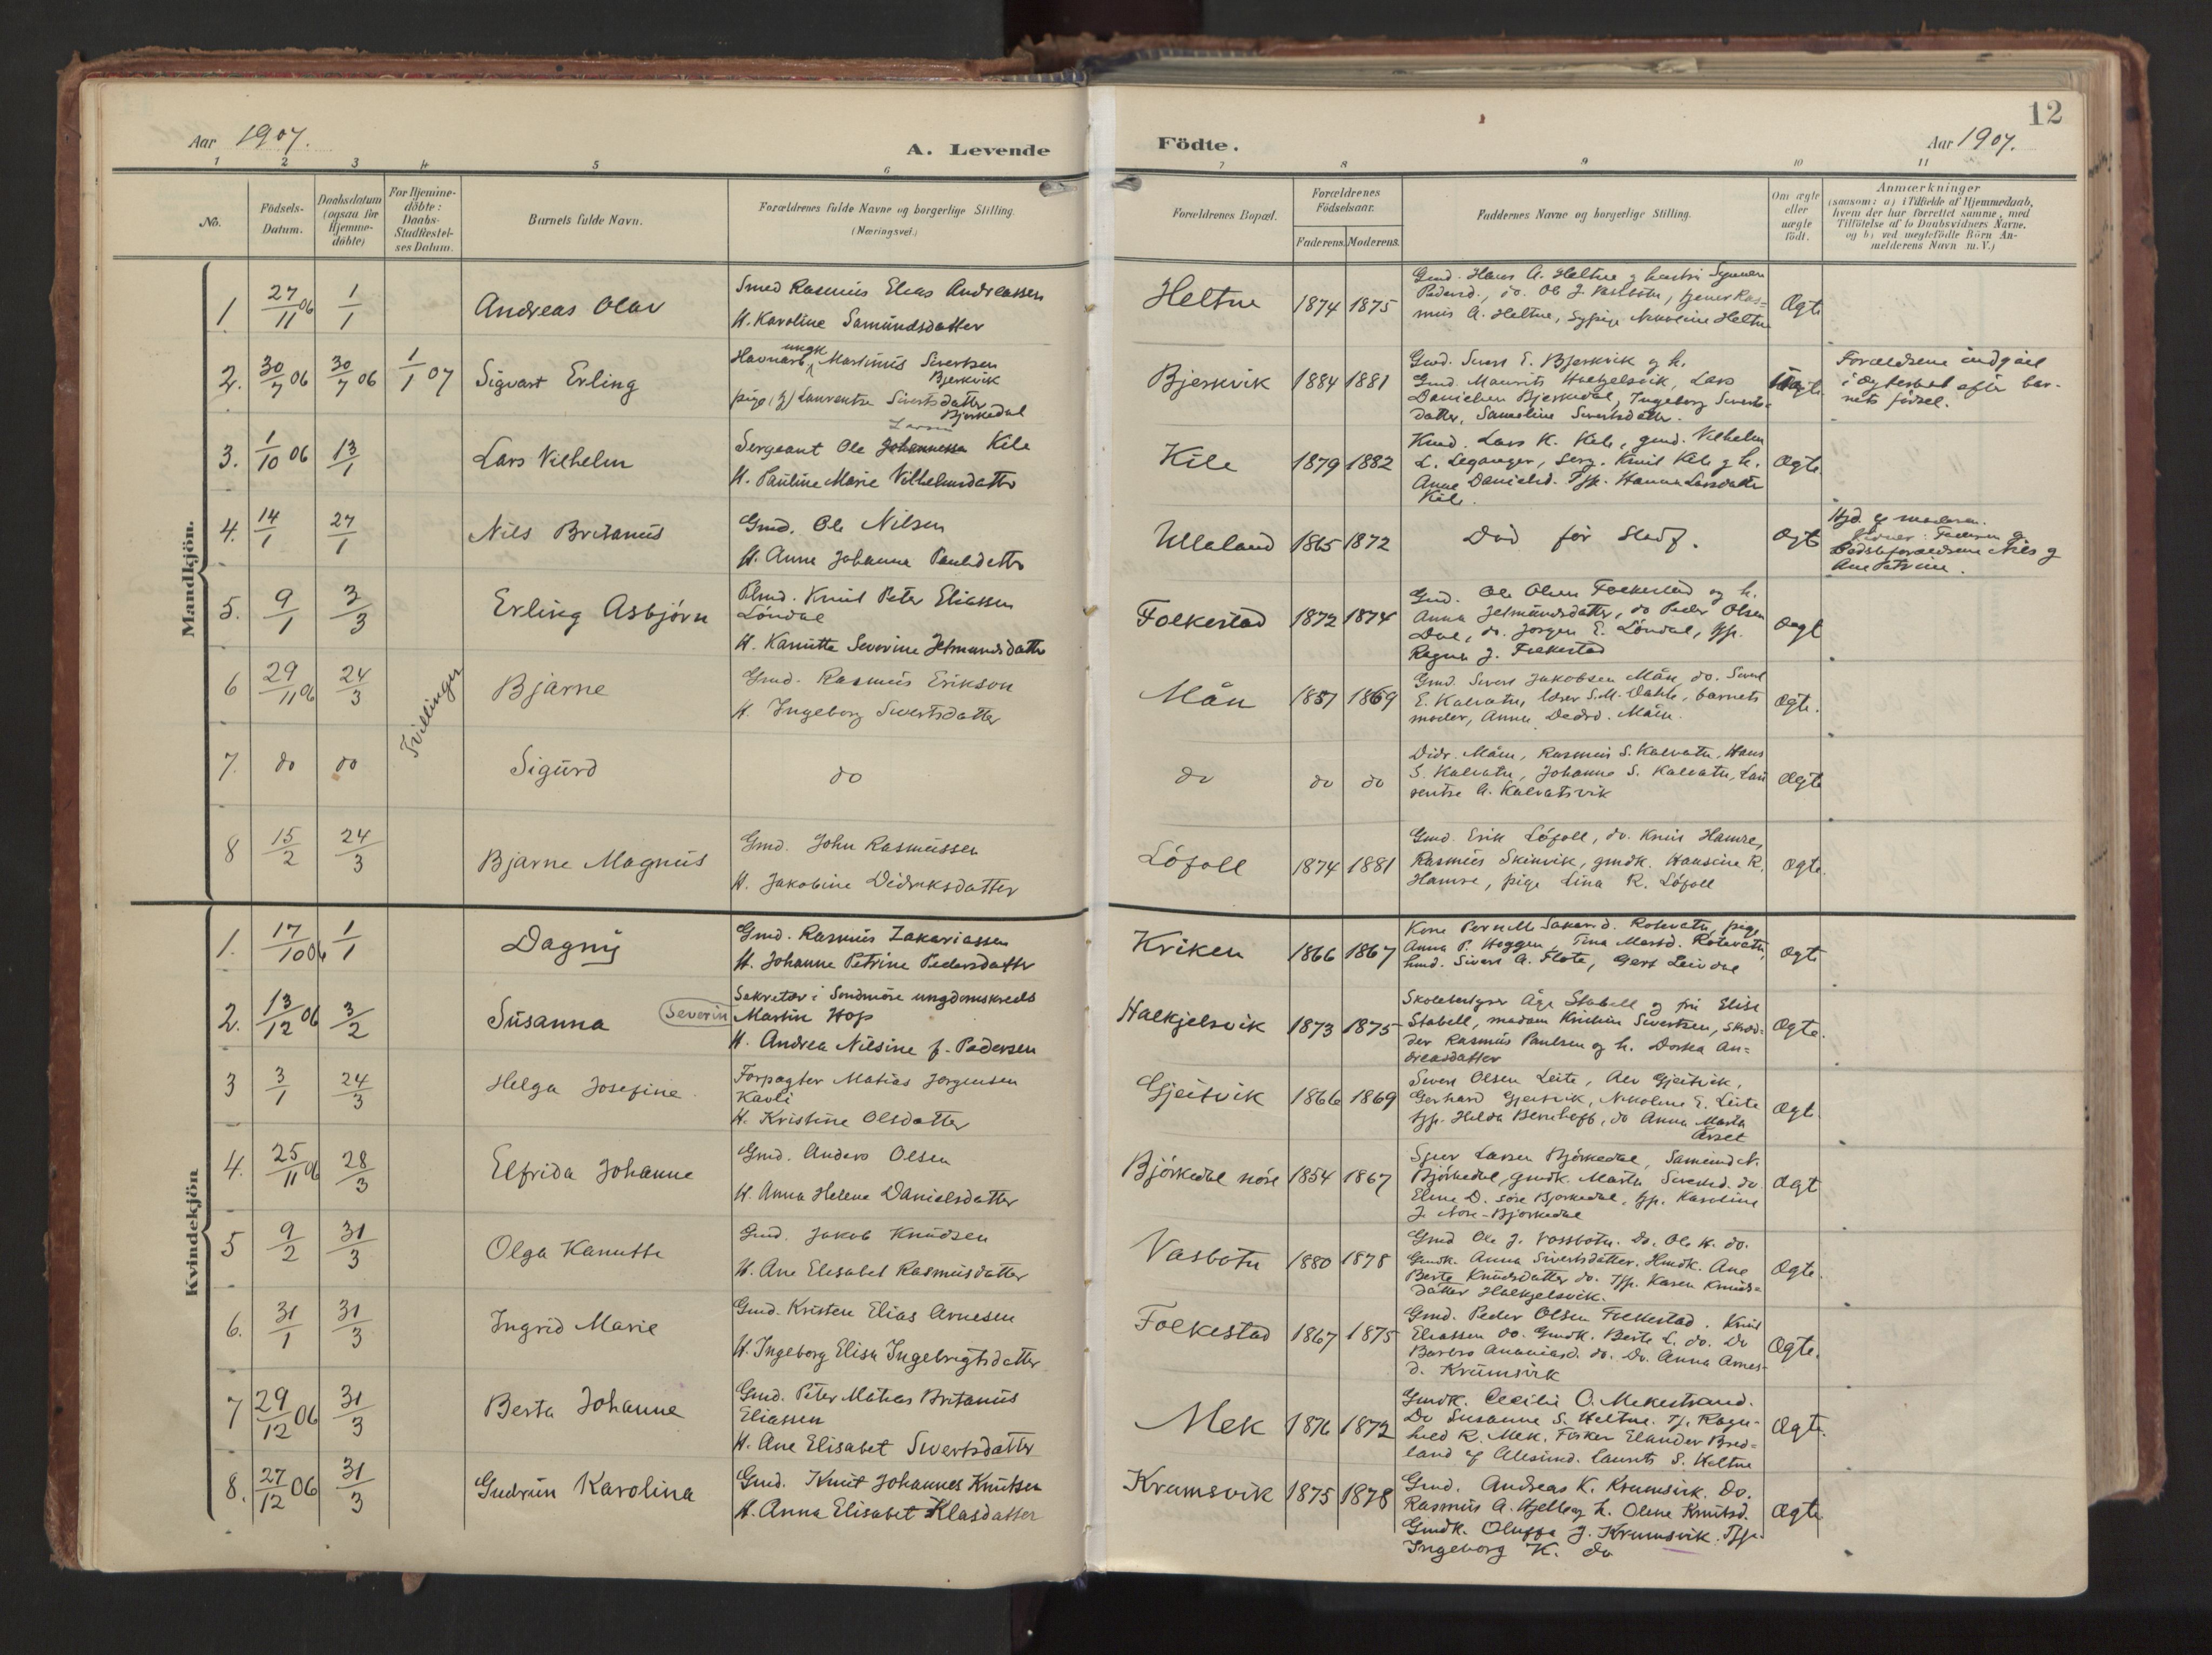 12
Aar 1907.
A. Levende
Födte.
Aar 1907.
1 2 3 4 5 6 7 8 9 10 11
No.
Födsels-Datum.
Daabsdatum (ogsaa for Hjemmedöbte)
For Hjemmedöbte: Daabs-Stadfæstelses Datum.
Barnets fulde Navn.
Forældrenes fulde Navne og borgerlige Stilling.
(Næringsvei.)
Forældrenes Bopæl.
Forældrenes Födselsaar.
Faderens. Moderens.
Faddernes Navne og borgerlige Stilling.
Om ægte eller uægte födt.
Anmærkninger
(saasom: a) i Tilfælde af Hjemmedaab,
hvem der har forrettet samme, med
Tilföielse af to Daabsvidners Navne.
og b) ved uægtefödte Börn An-
melderens Navn m. V.)
Mandkjön.
1 27/11 06 1/1 Andreas Olav
Smed Rasmus Elias Andreassen
H. Karoline Samundsdatter
Heltne 1874 1875
Gmd. Hans A. Heltne g hustru Synneva
Pedersd., do. Ole J. Vassbotn, tjener Ras=
mus A. Heltne, Sypige Nikoline Heltne
Ægte
2. 30/7 06 30/7 06 1/1 07 Sigvart Erling
Havnarb. ungk Martinus Sivertsen
Bjerkvik
pige (g) Laurentse Sivertsdatter
Bjerkedal
Bjerkvik 1884 1881
Gmd. Sivert E. Bjerkvik g h.
Gmd. Maurits Halkjelsvik, Lars
Danielsen Bjerkedal, Ingeborg Siverts=
datter, Samoline Sivertsdatter.
Uægte
Forældrene indgået
i ægteskab efter bar-
nets fødsel.
3. 1/10 06 13/1 Lars Vilhelm
Sergeant Ole Johannessen Larsen Kile
H. Pauline Marie Vilhelmsdatter
Kile 1879 1882
Kmd. Lars K. Kile, gmd. Vilhelm
L. Leganger, Serg. Knut Kile g h.
Anne Danielsd. Tjp. Hanna Larsdatter
Kile.
Ægte
4. 14/1 27/1 Nils Britanus
Gmd. Ole Nilsen
H. Anne Johanna Paulsdatter
Ullaland 1865 1872
Död för Stadf.
Ægte
Hjd. af moderen.
Vidner: Faderen g
Bedsteforældrene Nils g
Ane Petrine.
5. 9/1 3/3 Erling Asbjörn
Plmd. Knut Peter Eliassen
Löndal
H. Kanutta Severine Jetmundsdatter
Folkestad 1872 1874
Gmd. Ole Olsen Folkestad og h.
Anna Jetmundsdatter, do Peder Olsen
Dal, do. Jorgen E. Löndal, tjp.
Ragna J. Folkestad
Ægte
6 29/11 06 24/3 Tvillinger Bjarne
Gmd. Rasmus Erikson
H. Ingeborg Sivertsdatter
Mån 1857 1869
Gmd. Sivert Jakobsen Mån, do. Sivert
E. Kalvatn, lærer S.M. Dahle, barnets
moder, Anne Dedrd. Mån.
Ægte.
7. do do Sigurd
do
do do do
Didr. Mån, Rasmus S. Kalvatn, Hans
S. Kalvatn, Johanne S. Kalvatn, Lau
rentse A. Kalvatsvik
Ægte
8 15/2 24/3 Bjarne Magnus
Gmd. John Rasmussen
H. Jakobine Didriksdatter
Löfoll 1874 1881
Gmd. Erik Löfoll, do. Knut Hamre,
Rasmus Skinvik, gmdk. Hansine R.
Hamre, pige Lina R. Löfoll
Ægte.
Kvindekjön
1. 17/10 06 1/1 Dagny
Gmd. Rasmus Zakariassen
H. Johanne Petrine Pedersdatter
Kriken 1866 1867
Kone Pernill Sakarid. Rotevatn, pige
Anna P. Hoggen, Tina Martsd. Rotevatn,
hmd. Sivert A. Flote, Gert Leivdal
Ægte
2. 13/12 06 3/2 Susanna
Sekretær i Sondmöre ungdomskreds
Severin Martin Hop
H. Andrea Nilsine f. Pedersen
Halkjelsvik 1873 1875
Skolebestyrer Åge Stabell og fru Elise
Stabell, madam Kristin Sivertsen, skræd=
der Rasmus Paulsen og h. Dortea An=
dreasdatter
Ægte.
3 3/1 24/3 Helga Josefine.
Forpagter Matias Jorgensen
Kavli
H. Kristine Olsdatter
Gjeitvik 1866 1869
Sivert Olsen Leite, Alv Gjeitvik,
Gerhard Gjeitvik, Nikoline E. Leite
tjp. Helda Bernhoft, do Anna Marta
Årset
Ægte
4. 25/11 06 28/3 Elfrida Johanne
Gmd. Anders Olsen
H. Anna Helene Danielsdatter
Björkedal nöre 1854 1867
Sjur Larsen Björkedal, Samund N.
Björkedal, gmdk. Marta Sivertsd. do.
Eline D. söre Bjorkedal, tjp. Karoline
J. Nöre-Bjorkedal
Ægte
5 9/2 31/3 Olga Kanutte
Gmd. Jakob Knudsen
H. Ane Elisabet Rasmusdatter
Vasbotn 1880 1878
Gmd Ole J. Vassbotn. Do. Ole K. do.
Gmdk. Anna Sivertsdatter. Hmdk. Ane
Berte Knudsdatter do. Tjp. Karen Knuds=
datter Halkjelsvik.
Ægte.
6. 31/1 31/3 Ingrid Marie
Gmd. Kristen Elias Arnesen
H. Ingeborg Elisa Ingebrigtsdatter
Folkestad 1867 1875
Gmd. Peder Olsen Folkestad. Knut
Eliassen do. Gmdk. Berte L. do. Do
Barbro Ananiasd. do. Do. Anna Arnes-
d. Krumsvik
Ægte.
7 29/12 06 31/3 Berta Johanne
Gmd. Peter Matias Britanus
Eliassen
H. Ane Elisabet Sivertsdatter
Mek 1876 1872
Gmdk. Cecilie O. Mekestrand.
Do Susanne S. Heltne. Tj. Ragn-
hild R. Mek. Fisker Elander Bred=
land af Ålesund. Laurits S. Heltne
Ægte.
8. 27/12 06 31/3 Gudrun Karolina
Gmd. Knut Johannes Knutsen
H. Anna Elisabet Klasdatter
Krumsvik 1875 1878
Gmd. Andreas K. Krumsvik. Do.
Rasmus A. Hjellbg h. Oline Knutsd.
Gmdk. Oluffa J. Krumsvik. Tjp.
Ingeborg K. do
Ægte